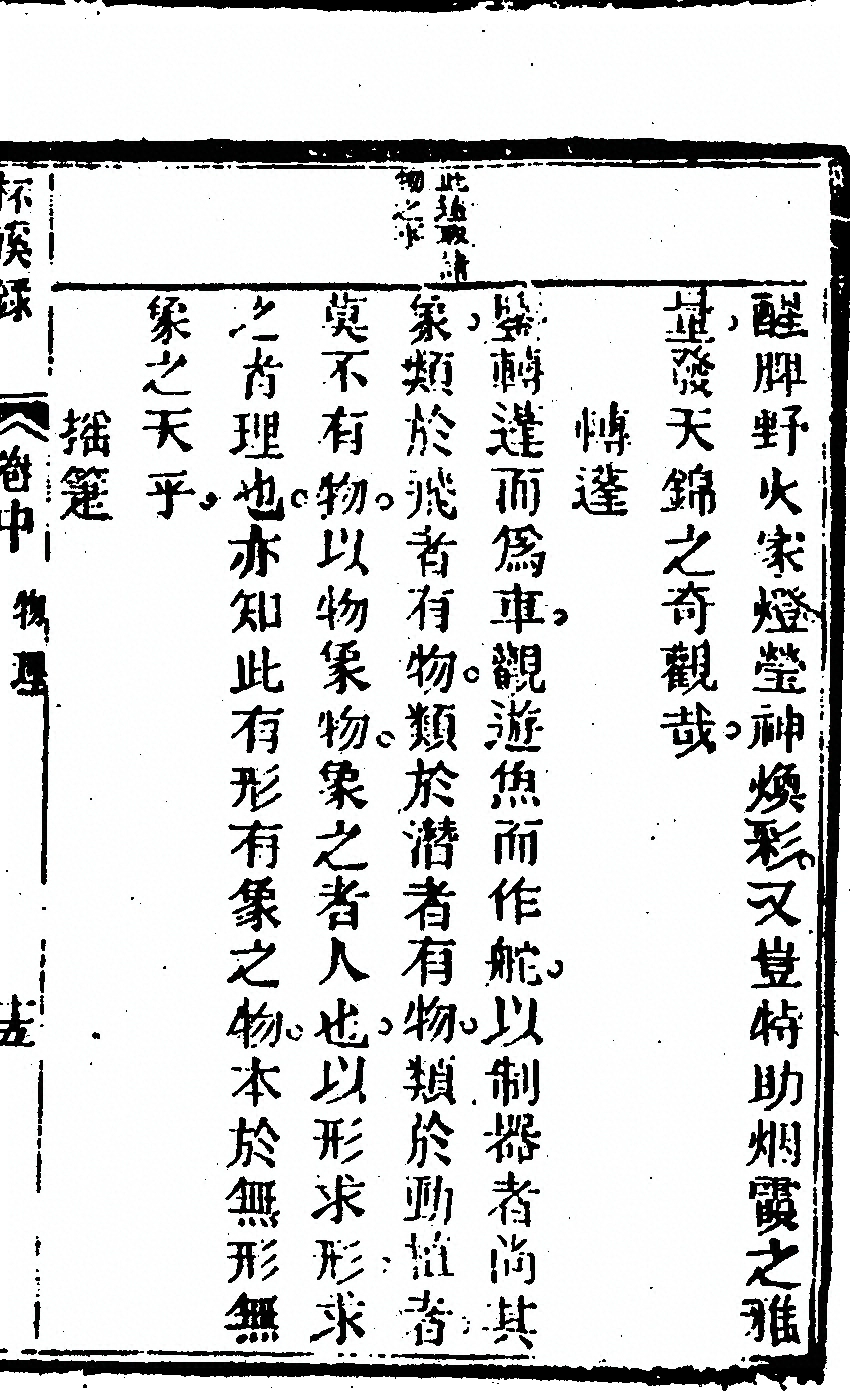 醒脾野火家燈瑩神煥彩又豈特助烟霞之雅
量發天錦之奇觀哉
轉蓬
鑒轉蓬而爲車觀遊魚而作舵以制器者尚其
象類於飛者有物類於潛者有物類於動植者
莫不有物以物象物象之者人也以形求形求
之者理也亦知此有形有象之物本於無形無
象之天乎
搖箑
卷中
物理